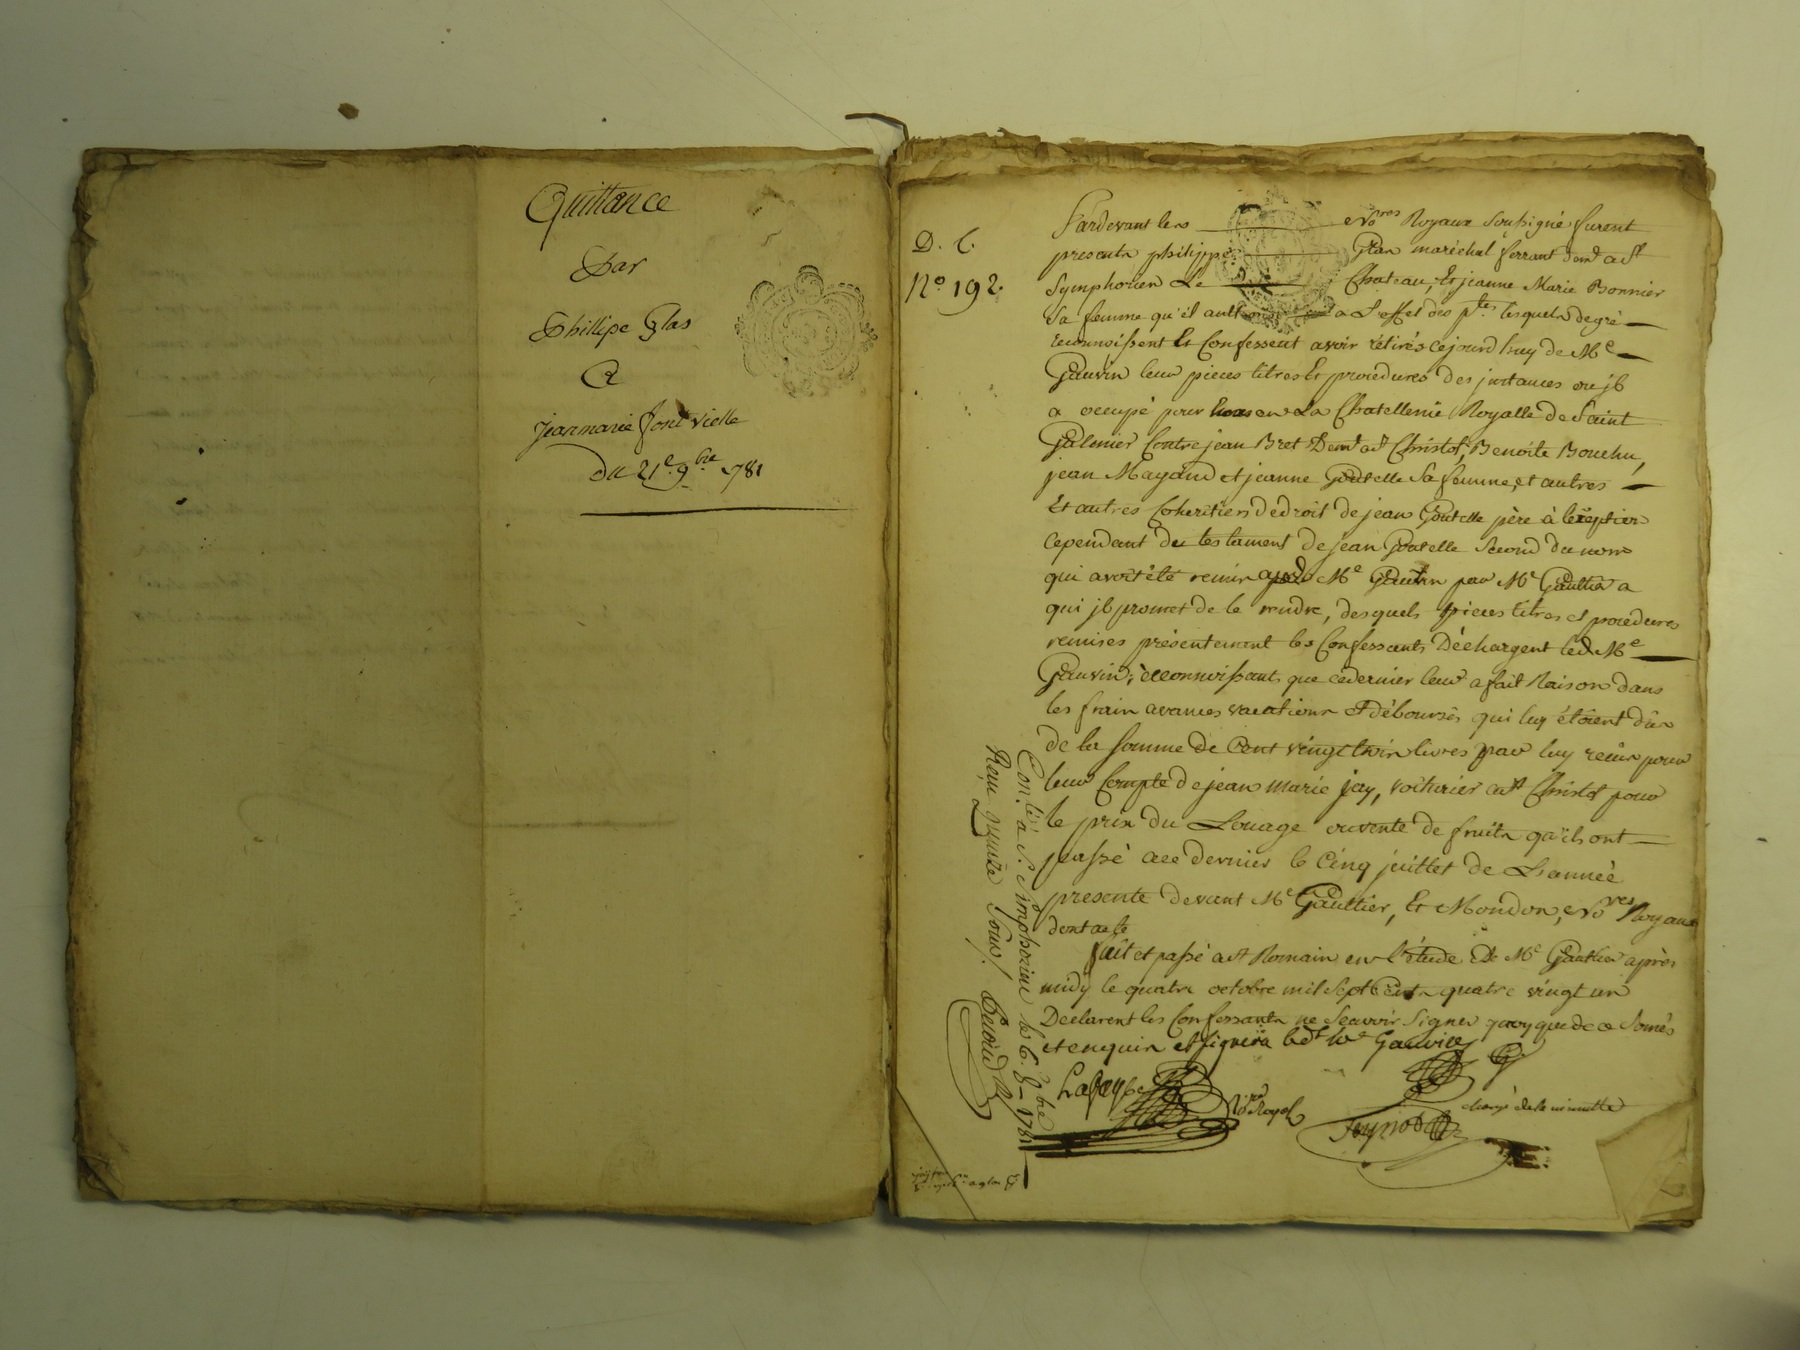 Quittance
Par
Phillipe Glas
A
Jeanmarie font vielle
du 21e 9bre 781
D. C.
No 192.
Pardevant les Nores Royaux soussigné furent
presents philippe Glas maréchal ferrant demt a st
Symphorien Le Chateau, Et jeanne Marie Bonnier
sa femme qu'il authorise a L'effet des ptes lesquels de gré
reconnoissent Et Confessent avoir rétirés cejourd'huy de Me
Gauvin leur pieces titres Et procedures des instances ou jl
a occupé pour eux en La Chatellenie Royalle de Saint
Galmier Contre jean Bret Demt a st Christot, Benoite Bouchu,
jean Mayand et jeanne Goutelle sa femme, et autres
Et autres Coheritiers de droit de jean Goutelle père à l'exeption
cependant du testament de jean Goutelle second du nom
qui avoit été remis aud Me Gauvin par Me Gaultier a
qui jl promet de le rendre, desquels pieces titres et procedures
remises présentement les Confessants Déchargent led Me
Gauvin; réconnoissants que ce dernier leur a fait Raison dans
les frais avances vacations Et déboursés qui luy étoient dûs
de la somme de Cent vingt trois livres par luy reçûs pour
leur Compte de jean marie jay, voiturier a st Christot pour
le prix du Louage ou vente de fruits qu'ils ont
passé a ce dernier le Cinq juillet de L'année
presente devant Me Gaultier, Et Mondon, Nores Royaux
dont acte
fait et passé a st Romain en l'étude de Me Gaultier après
midy le quatre octobre mil sept Cents quatre vingt un
Déclarent les Confessants ne sçavoir signer quoy que de ce somés
et enquis et signera ledt Me Gauvin
Nore Royal
chargé de la minutte
Conlé a S. Simphorien le 6. 8bre 1781
Reçu quinze sous.